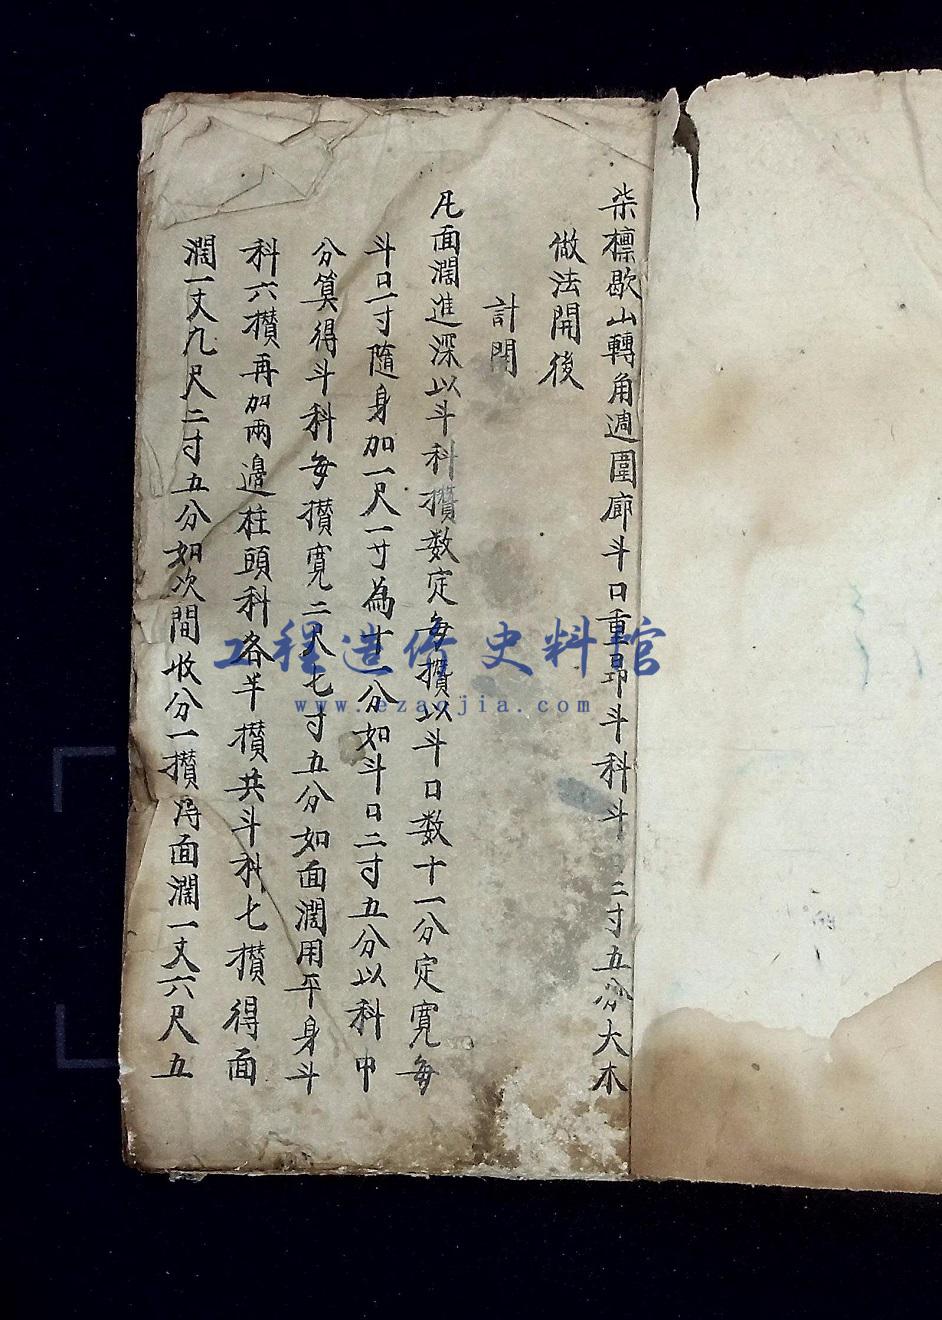 柒檁歇山轉角週圍廊斗口重昂斗科斗口二寸五分大木
做法開後
計開
凡面濶進深以斗科攅数定每攅以斗口数十一分定寛每
斗口一寸隨身加一尺一寸為十一分如斗口二寸五分以科中
分算得斗科每攅寛二尺七寸五分如面濶用平身斗
科六攅再加兩邊柱頭科各半攅共斗科七攅得面
濶一丈九尺二寸五分如次間收分一攅得面濶一丈六尺五
工程造价史料馆
www.ezaojia.com